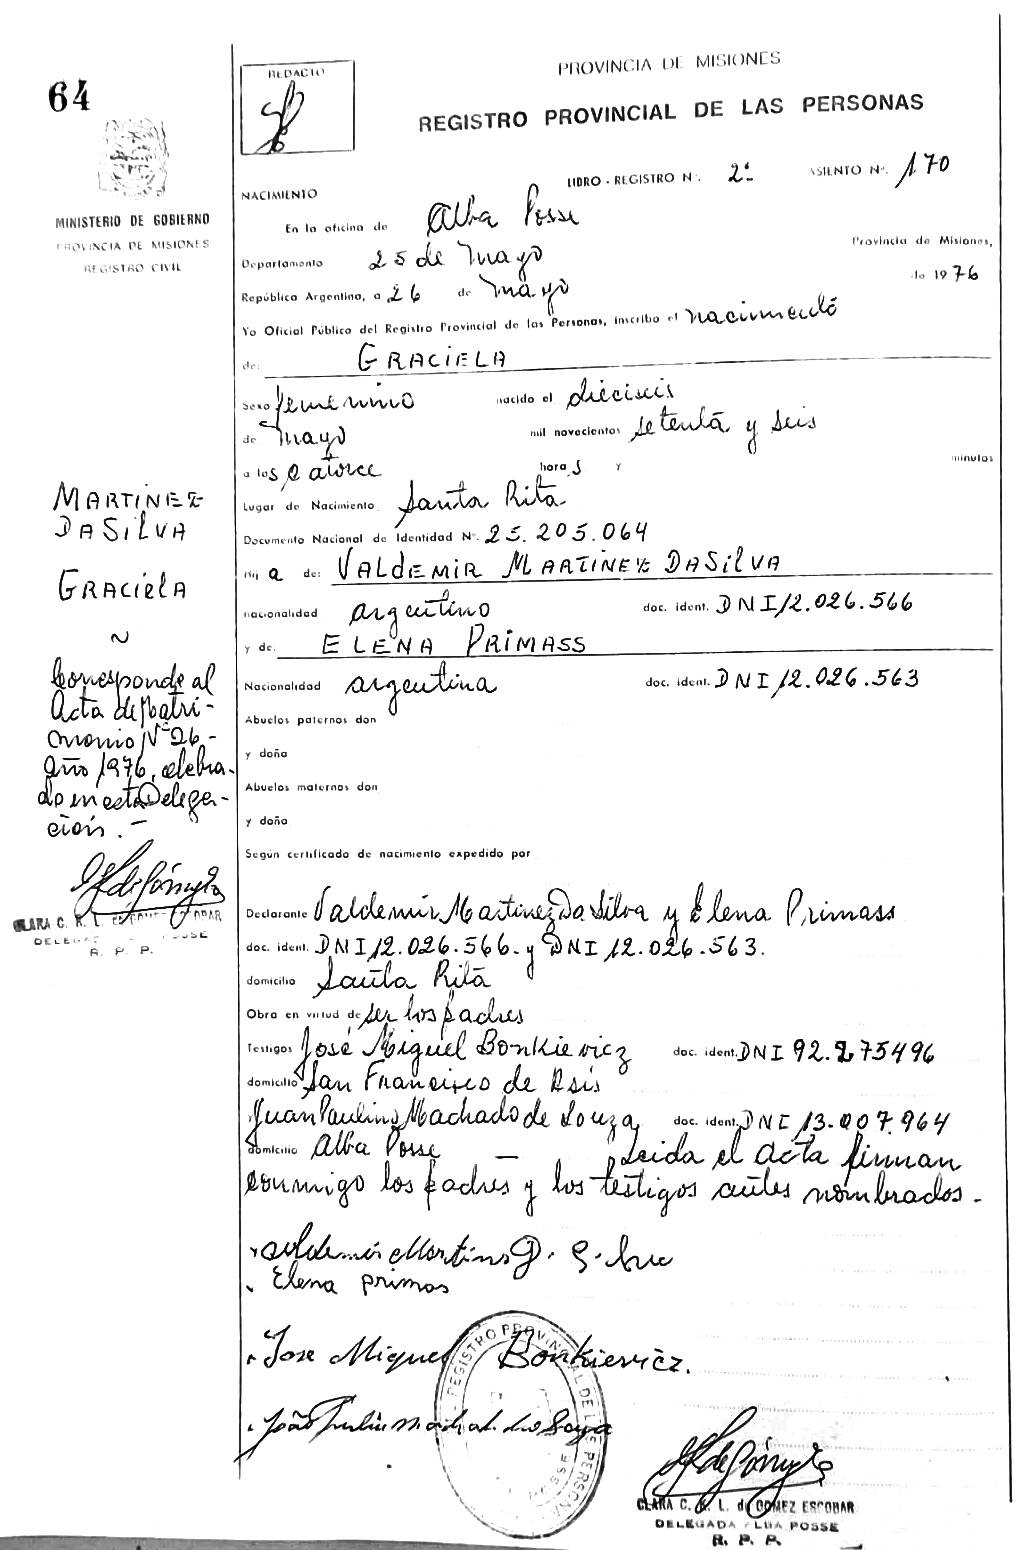 64
MINISTERIO DE GOBIERNO
PROVINCIA DE MISIONES
REGISTRO CIVIL
REDACTO
PROVINCIA DE MISIONES
REGISTRO PROVINCIAL DE LAS PERSONAS
LIBRO - REGISTRO N°. 2° ASIENTO N°. 170
NACIMIENTO
En la oficina de Alba Posse
Departamento 25 de Mayo Provincia de Misiones,
República Argentina, a 26 de Mayo de 1976
Yo Oficial Público del Registro Provincial de las Personas, inscribo el nacimiento
de: GRACIELA
Sexo femenino nacido el dieciseis
de Mayo mil novecientos setenta y seis
a las catorce horas y minutos
Lugar de Nacimiento Santa Rita
Documento Nacional de Identidad N°. 25.205.064
Hija de: VALDEMIR MARTINEZ DASILVA
nacionalidad argentino doc. ident. DNI 12.026.566
y de: ELENA PRIMASS
Nacionalidad argentina doc. ident. DNI 12.026.563
Abuelos paternos don
y doña
Abuelos maternos don
y doña
Según certificado de nacimiento expedido por
Declarante Valdemir Martinez DaSilva y Elena Primass
doc. ident. DNI 12.026.566. y DNI 12.026.563.
domicilio Santa Rita
Obra en virtud de ser los padres
Testigos José Miguel Bonkievicz doc. ident. DNI 92.275496
domicilio San Francisco de Asis
Juan Paulino Machado de Souza, doc. ident. DNI 13.007.964
domicilio Alba Posse — Leida el Acta firman
conmigo los padres y los testigos antes nombrados.-
Elena primas
Jose Miguel Bonkievicz.
REGISTRO PROVINCIAL DE LAS PERSONAS
POSSE
CLARA C. R. L. de GOMEZ ESCOBAR
DELEGADA ALBA POSSE
R. P. P.
MARTINEZ
DASILVA
GRACIELA
~
Corresponde al
Acta de Matri-
monio N° 26-
año 1976, celebra-
do en esta Delega-
ción.-
CLARA C. R. L. de GOMEZ ESCOBAR
DELEGADA ALBA POSSE
R. P. P.